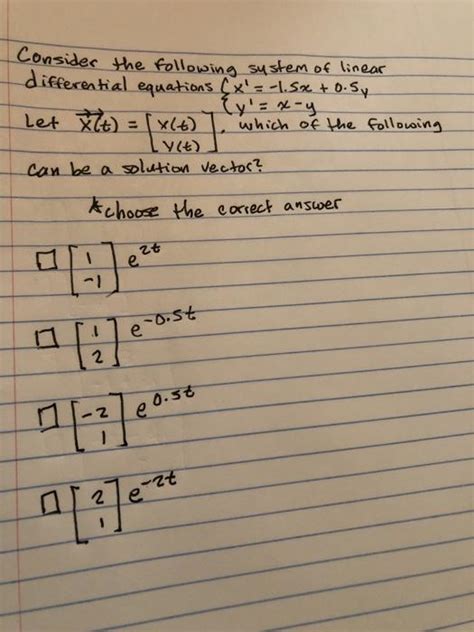 Consider the following system of linear
differential equations { x' = -1.5x + 0.5y
{ y' = x - y
Let X(t) = [ x(t) ] , which of the following
[ y(t) ]
can be a solution vector?
*choose the correct answer
□ [ 1 ] e^2t
[ -1 ]
□ [ 1 ] e^-0.5t
[ 2 ]
□ [ -2 ] e^0.5t
[ 1 ]
□ [ 2 ] e^-2t
[ 1 ]